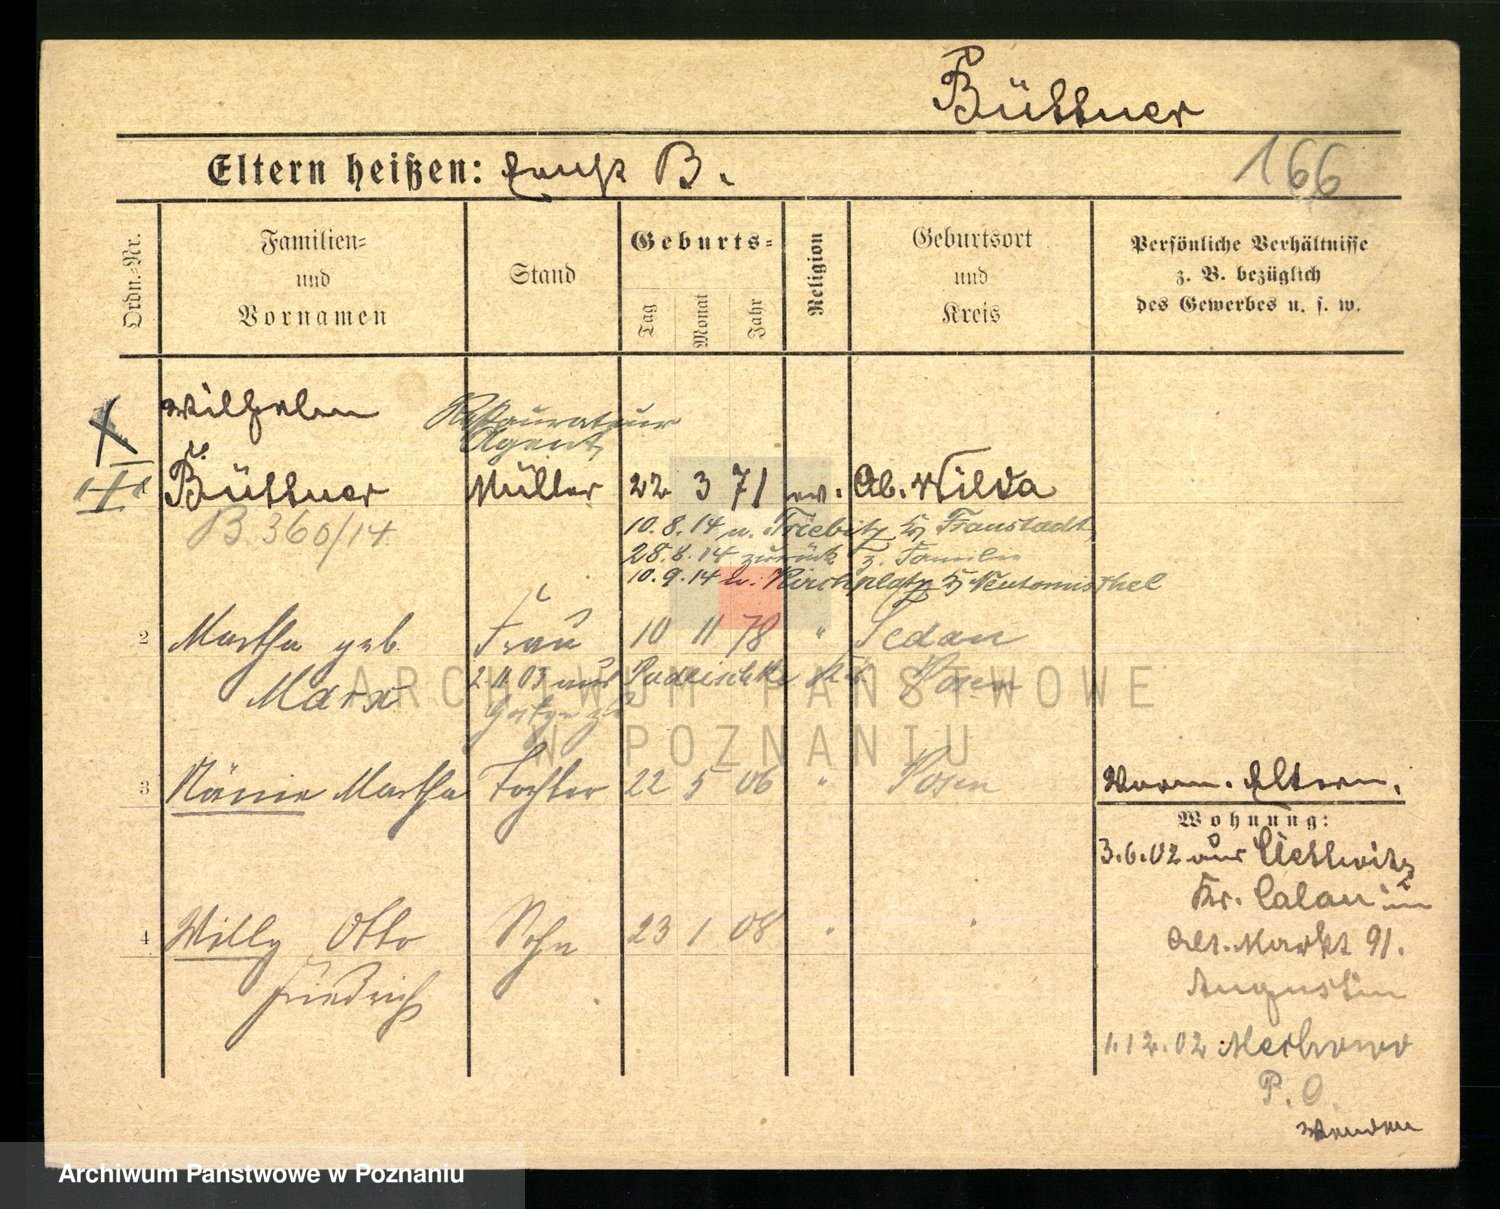 Büttner
Eltern heißen: Ernst B.
166
Ordn.-Nr.
Familien-
und
Vornamen
Stand
Geburts-
Tag
Monat
Jahr
Religion
Geburtsort
und
Kreis
Persönliche Verhältnisse
z. B. bezüglich
des Gewerbes u. s. w.
Wilhelm
Restaurateur
Agent
Büttner Müller 22 3 71 ev. Ob. Wilda
B. 360/14
10.8.14 n. Triebitz Fraustadt
28.8.14 zurück z. Familie
10.9.14 n. Kirchplatz Neutomischel
2 Martha geb. Frau 10 11 78 " Sedan
Marx
2.11.03 aus
Posen
3 Martha Tochter 22 5 06 " Posen
Vorm. Eltern.
Wohnung:
3.6.02 aus
Kr. Calau in
Alt. Markt 91.
Augustin
4 Willy Otto Sohn 23 1 08 " "
Friedrich
1.12.02
P. O.
wenden
ARCHIWUM PAŃSTWOWE
W POZNANIU
Archiwum Państwowe w Poznaniu